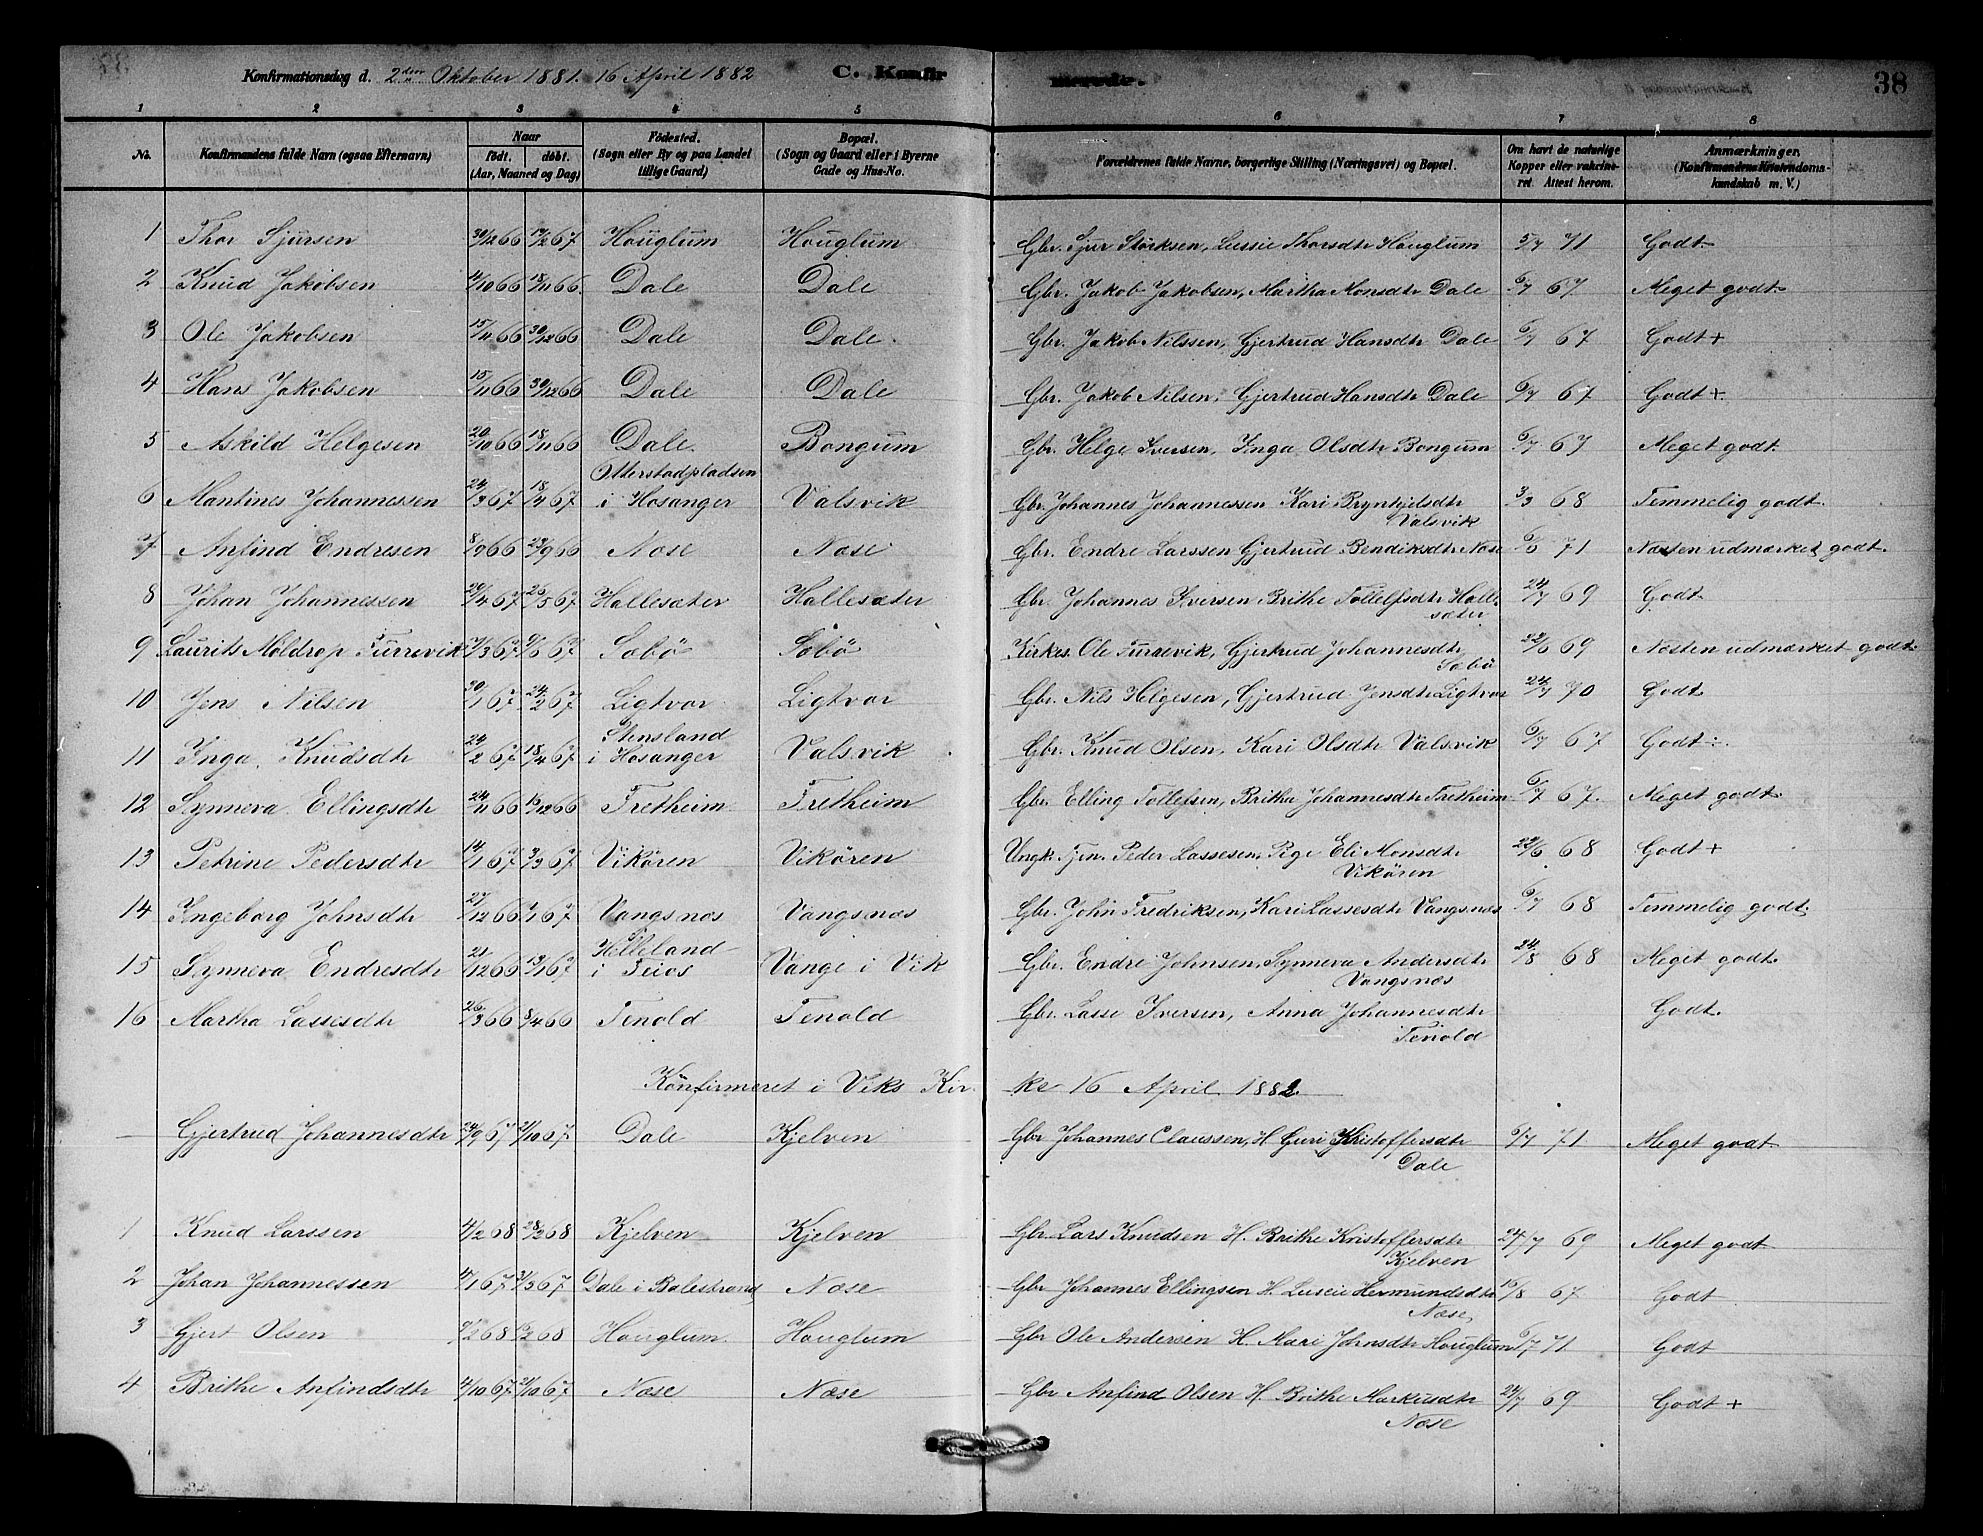 Konfirmationsdag d. 2den Oktober 1881. 16 April 1882 C. Konfirmerede. 38
1 2 3 4 5 6 7 8
No. Konfirmandens fulde Navn (ogsaa Efternavn) Naar født. døbt. (Aar, Maaned og Dag) Fødested. (Sogn eller By og paa Landet tillige Gaard) Bopæl. (Sogn og Gaard eller i Byerne Gade og Hus-No. Forældrenes fulde Navne, borgerlige Stilling (Næringsvei) og Bopæl. Om havt de naturlige Kopper eller vakcineret. Attest herom. Anmærkninger, (Konfirmandens Kristendomskundskab m. V.)
1 Thor Sjursen 30/12 66 17/2 67 Houglum Houglum Gbr. Sjur Størksen, Lussie Thorsdtr Houglum 5/7 71 Godt
2 Knud Jakobsen 4/10 66 18/11 66. Dale Dale Gbr. Jakob Jakobsen, Martha Monsdtr Dale 6/7 67 Meget godt
3 Ole Jakobsen 15/11 66 30/12 66 Dale Dale. Gbr. Jakob Nilssen, Gjertrud Hansdtr Dale 6/7 67 Godt +
4 Hans Jakobsen 15/11 66 30/12 66 Dale Dale Gbr. Jakob Nilsen, Gjertrud Hansdtr Dale 6/7 67 Godt +
5 Askild Helgesen 20/10 66 18/11 66 Dale. Bongum Gbr. Helge Iversen, Inga Olsdtr Bongum 6/7 67 Meget godt.
6 Mantines Johannessen 24/3 67 18/4 67 Otterstadpladsen i Hosanger Valsvik Gbr. Johannes Johannessen Kari Brynhjilsdtr Valsvik 3/3 68 Temmelig godt.
7 Anfind Endresen 8/9 66 23/9 66 Næse Næse Gbr. Endre Larssen Gjertrud Bendiksdtr Næse 71 Næsten udmærket godt.
8 Johan Johannessen 20/4 67 26/5 67 Hallesæter Hallesæter Gbr. Johannes Iversen Brithe Tollefsdtr Hallesæter 24/7 69 Godt
9 Laurits Moldrop Turrevik Sæbø Sæbø Kirkes. Ole Turrevik, Gjertrud Johannesdtr Sæbø 22/6 69 Næsten udmærket godt.
10 Jens Nilsen 30/1 67 24/2 67 Ligtvor Ligtvor Gbr. Nils Helgesen, Gjertrud Jensdtr Ligtvor 24/7 70 Godt
11 Inga Knudsdtr 24/2 67 18/4 67 Stensland i Hosanger Valsvik Gbr. Knud Olsen, Kari Olsdtr Valsvik 6/7 67 Godt ÷.
12 Synneva Ellingsdtr 24/11 66 15/12 66 Fretheim Fretheim Gbr. Elling Tollefsen, Brithe Johannesdtr Fretheim 6/7 67. Meget godt
13 Petrine Pedersdtr 14/1 67 3/3 67 Vikøren Vikøren Ungk. Tjen. Peder Lassesen, Pige Eli Monsdtr Vikøren 22/6 68 Godt +
14 Ingeborg Johnsdtr 27/12 66 Vangsnæs Vangsnæs Gbr. John Fredriksen, Kari Lassesdtr Vangsnæs 6/7 68 Temmelig godt.
15 Synneva Endresdtr 21/12 66 13/1 67 Helleland i Vange i Vik Gbr. Endre Johnsen, Synneva Andersdtr Vangsnæs 24/8 68 Meget godt.
16 Martha Lassesdtr 26/3 66 8/4 66 Tenold Tenold Gbr. Lasse Iversen, Anna Johannesdtr Tenold Godt.
Konfirmeret i Viks Kirke 16 April 1882
Gjertrud Johannesdtr 24/9 67 Dale Kjelven Gbr Johannes Claussen, H Guri Kristoffersdtr Dale 6/7 71. Meget godt
1 Knud Larssen 4/2 68 28/2 68 Kjelven Kjelven Gbr. Lars Knudsen H. Brithe Kristoffersdtr Kjelven 24/7 69 Meget godt
2 Johan Johannessen Dale i Balestrand Næse Gbr Johannes Ellingsen H. Luseie Hermundsdtr Næse 16/8 67 Godt
3 Gjert Olsen Houglum Houglum Gbr Ole Andersen H. Mari Johnsdtr Houglum 6/7 71 Godt
4 Brithe Anfindsdtr 4/10 67 Næse Næse Gbr Anfind Olsen H Brithe Markusdtr Næse 24/7 69 Godt +